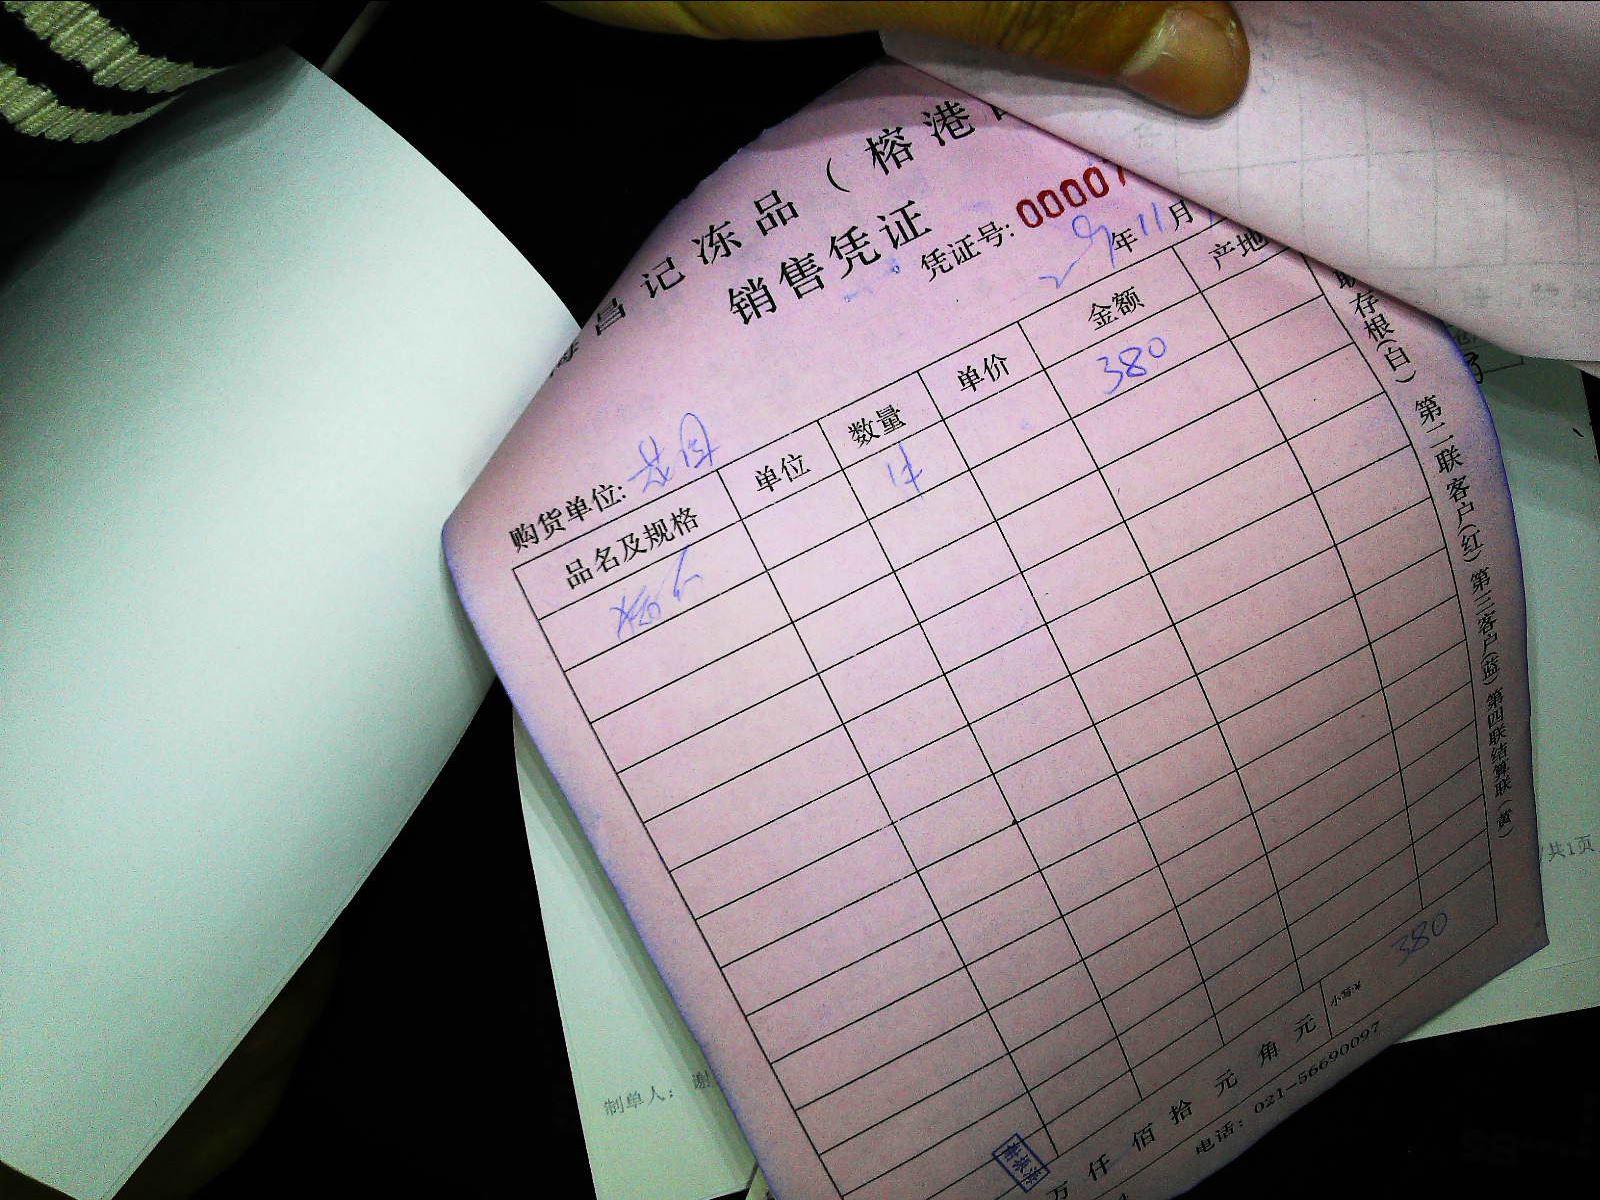 昌记冻品（榕港
销售凭证
凭证号: 00007
年11月
购货单位:
品名及规格 单位 数量 单价 金额 产地
1件 380
存根(白) 第二联客户(红) 第三客户(蓝) 第四联结算联(黄)
380
万 仟 佰 拾 元 角 元 小写:¥
电话: 021-56690097
制单人: 谢
共1页